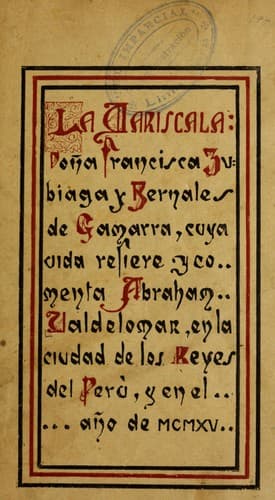 IMPARCIAL
LIMA
LA MARISCALA:
Doña Francisca Zu-
biaga y Bernales
de Gamarra, cuya
vida refiere y co..
menta Abraham..
Valdelomar, en la
ciudad de los Reyes
del Perù, y en el..
... año de MCMXV..